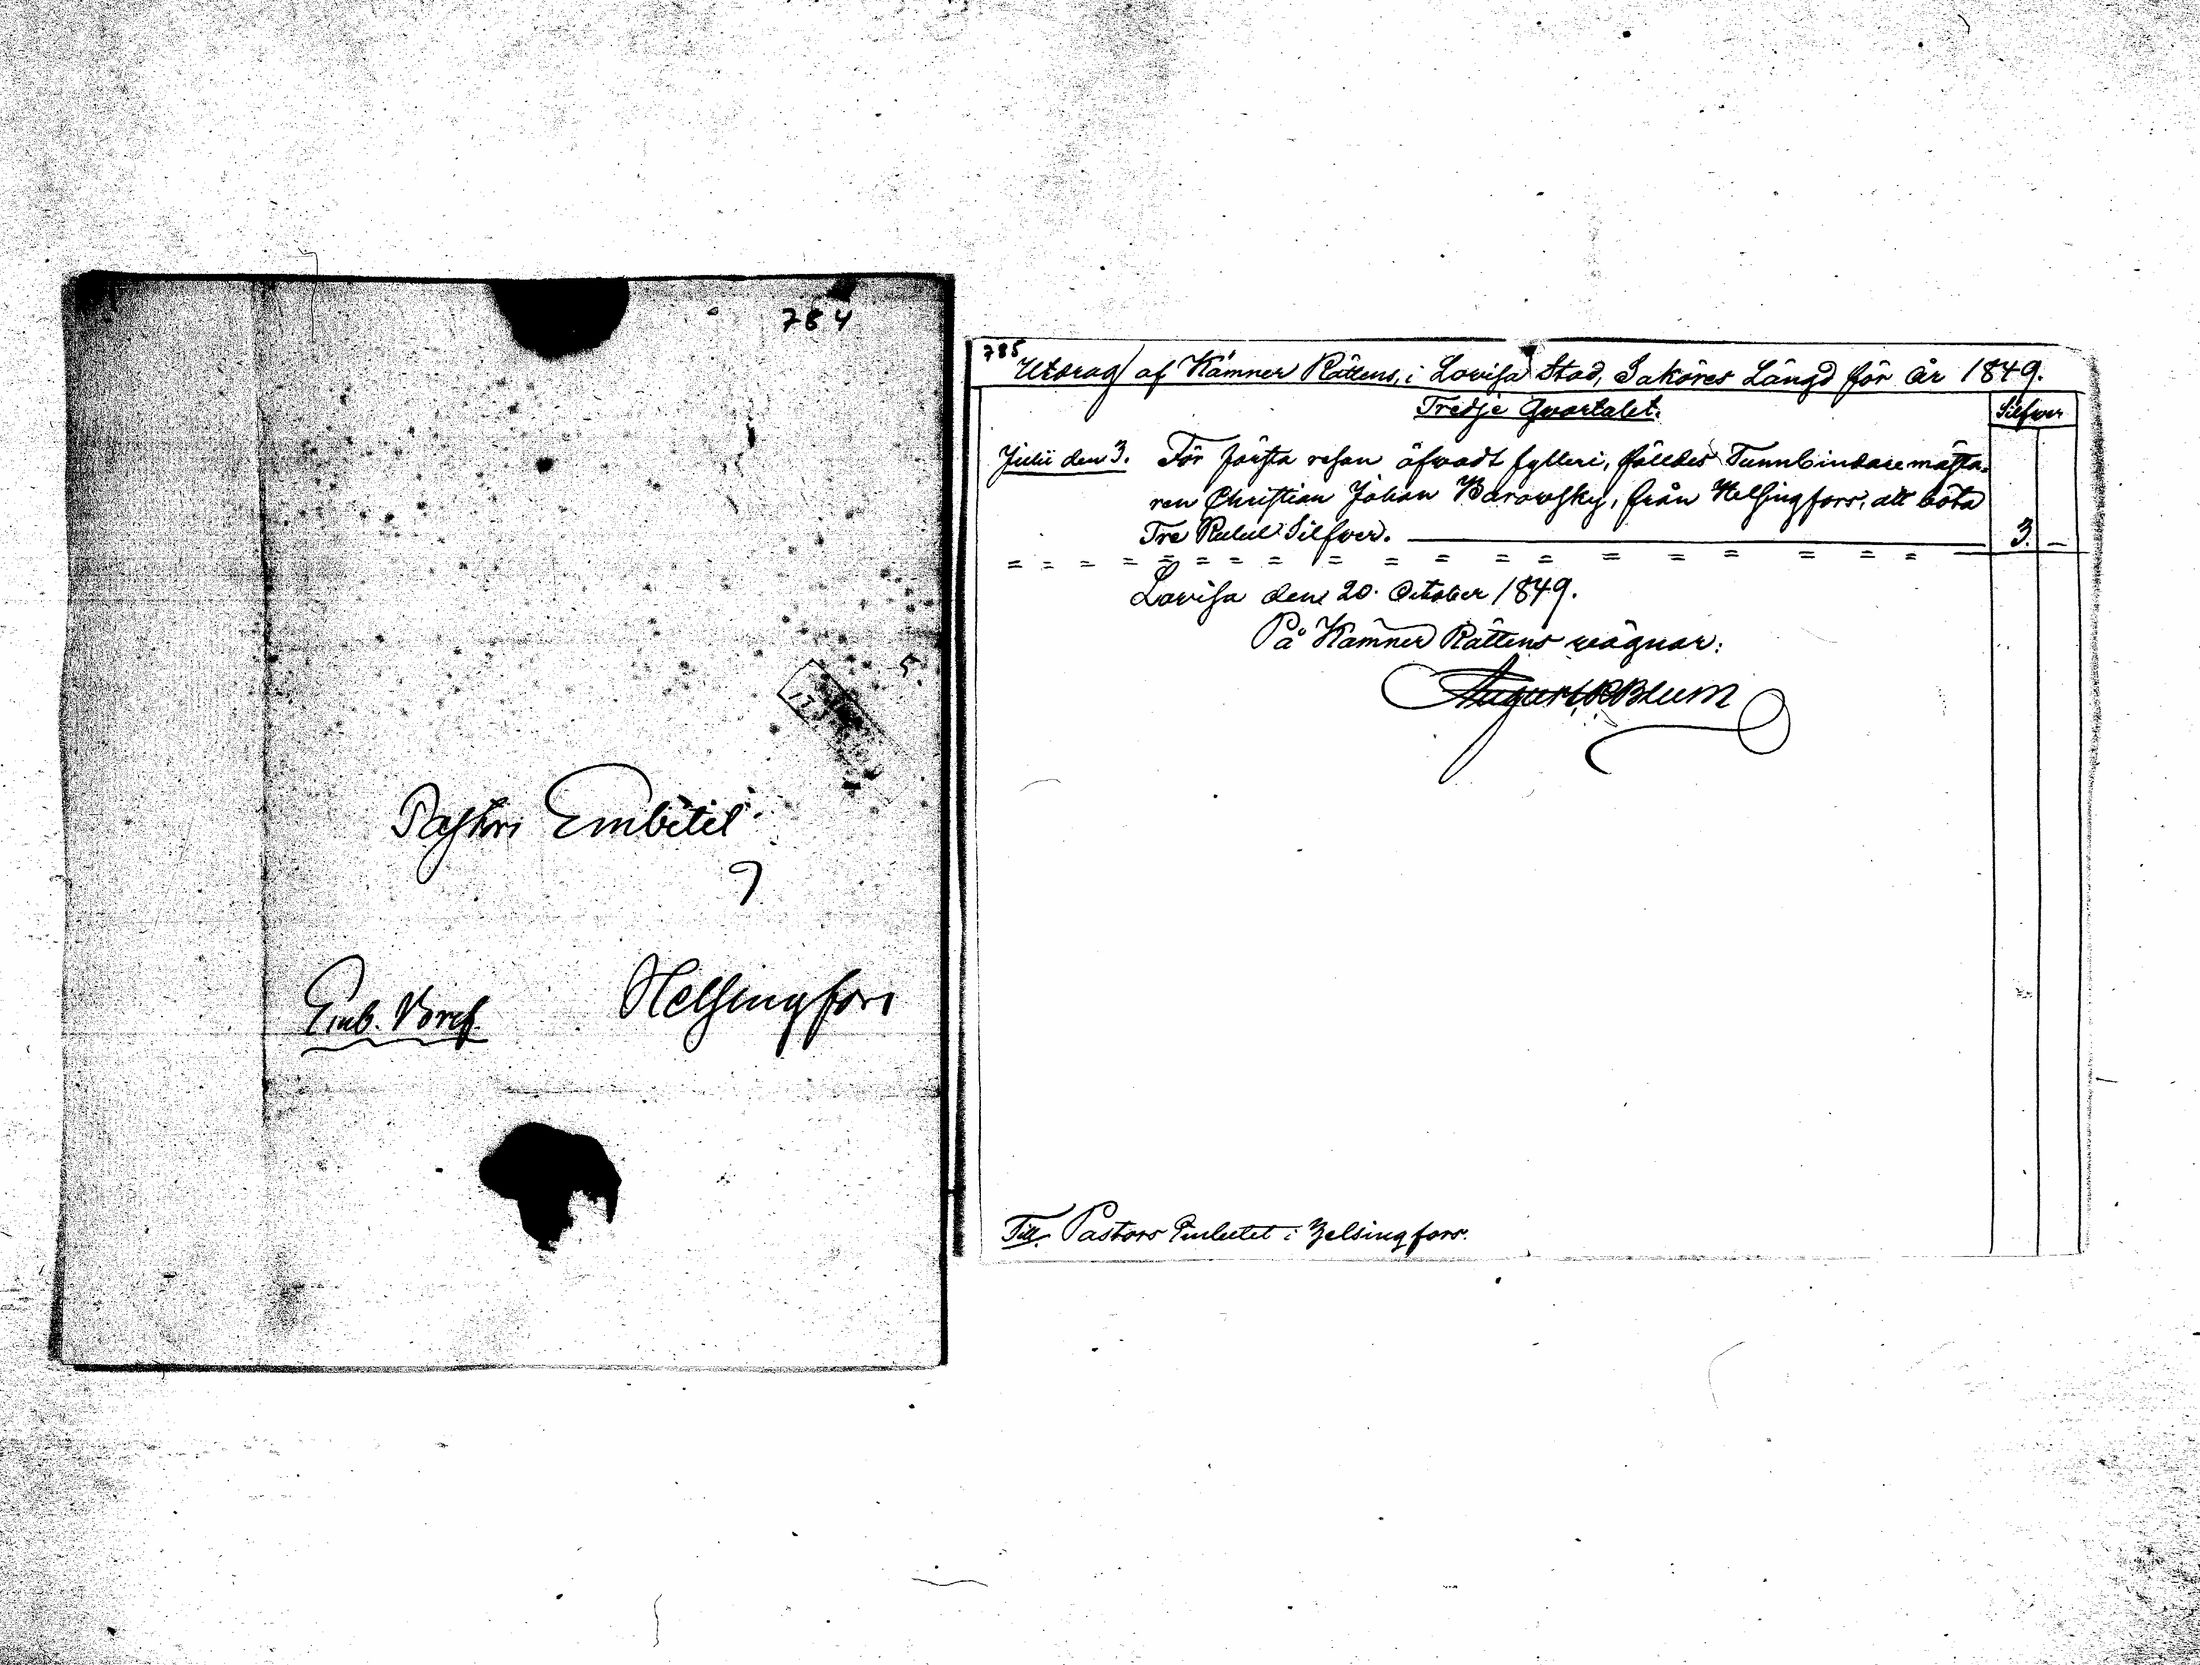 784
Pastors Embetet
i
Emb. Bref.
Helsingfors
785
Utdrag af Kämner Rättens, i Lovisa Stad, Saköres Längd för år 1849.
Tredje Qvartalet.
Silfver
Julii den 3. För första resan öfvadt fylleri, fälldes Tunnbindaremästa-
ren Christian Johan Barowsky, från Helsingfors, att böta
Tre Rubel Silfver. 3. —
Lovisa den 20. October 1849.
På Kämner Rättens vägnar:
August Blum
Till Pastors Embetet i Helsingfors.